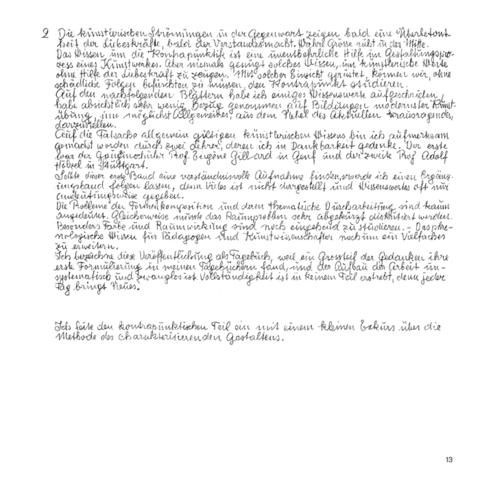 2 Die künstlerischen Strömungen in der Gegenwart zeigen bald eine Überbetont-
heit der Liebeskräfte, bald der Verstandesmacht. Wahre Grösse ruht in der Mitte.
Das Wissen um die Kontrapunktik ist eine unentbehrliche Hilfe im Gestaltungspro-
zess eines Kunstwerkes. Aber niemals genügt solches Wissen, um künstlerische Werte
ohne Hilfe der Liebeskraft zu zeugen. Mit solcher Einsicht gerüstet, können wir, ohne
schädliche Folgen befürchten zu müssen, den Kontrapunkt studieren.
Auf den nachfolgenden Blättern habe ich einiges Wissenswerte aufgeschrieben,
habe absichtlich sehr wenig Bezug genommen auf Bildungen modernster Kunst-
übung, um möglichst Allgemeines, aus dem Fabel des Aktuellen herausragendes,
darzustellen.
Auf die Tatsache allgemein gültigen künstlerischen Wissens bin ich aufmerksam
gemacht worden durch zwei Lehrer, deren ich in Dankbarkeit gedenke. Der erste
war der Gauguinschüler Prof. Eugène Gilliard in Genf und der zweite Prof. Adolf
Hölzel in Stuttgart.
Sollte dieser erste Band eine verständnisvolle Aufnahme finden, werde ich einen Ergänz-
ungsband folgen lassen, denn Vieles ist nicht dargestellt und Wissenswertes oft nur
andeutungsweise gegeben.
Die Probleme der Formkomposition und deren thematische Durcharbeitung sind kaum
angedeutet. Gleicherweise müsste das Raumproblem sehr abgekürzt diskutiert werden.
Besonders Farbe und Raumwirkung sind noch eingehend zu studieren. – Das phä-
nologische Wissen für Pädagogen und Kunstwissenschafter noch um ein Vielfaches
zu erweitern.
Ich bezeichne diese Veröffentlichung als Tagebuch, weil ein Grossteil der Gedanken ihre
erste Formulierung in meinen Tagebüchern fand, und der Aufbau der Arbeit un-
systematisch und zwanglos ist. Vollständigkeit ist in keinem Teil erstrebt, denn jeder
Tag bringt Neues.
Ich leite den kontrapunktischen Teil ein mit einem kleinen Exkurs über die
Methode des charakterisierenden Gestaltens.
13